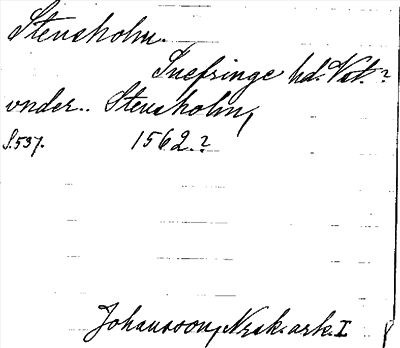 Stensholm.
Tuefringe hd. Vst.?
vnder.. Stensholm,
S.537. 1562.?
Johansson, Nrsk. ark. I